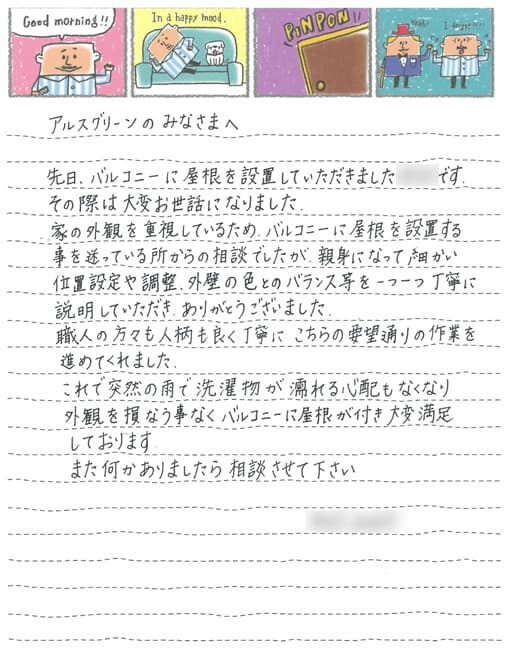 Good morning!!
In a happy mood.
PiNPON!!
Yeah!
I forgot!!!!
アルスグリーンの みなさまへ
先日、バルコニーに屋根を設置していただきました です.
その際は大変お世話になりました.
家の外観を重視しているため、バルコニーに屋根を設置する
事を迷っている所からの相談でしたが、親身になって細かい
位置設定や調整、外壁の色とのバランス等を一つ一つ丁寧に
説明していただき、ありがとうございました.
職人の方々も人柄も良く丁寧に こちらの要望通りの作業を
進めてくれました.
これで突然の雨で洗濯物が濡れる心配もなくなり
外観を損なう事なくバルコニーに屋根が付き大変満足
しております.
また何かありましたら相談させて下さい